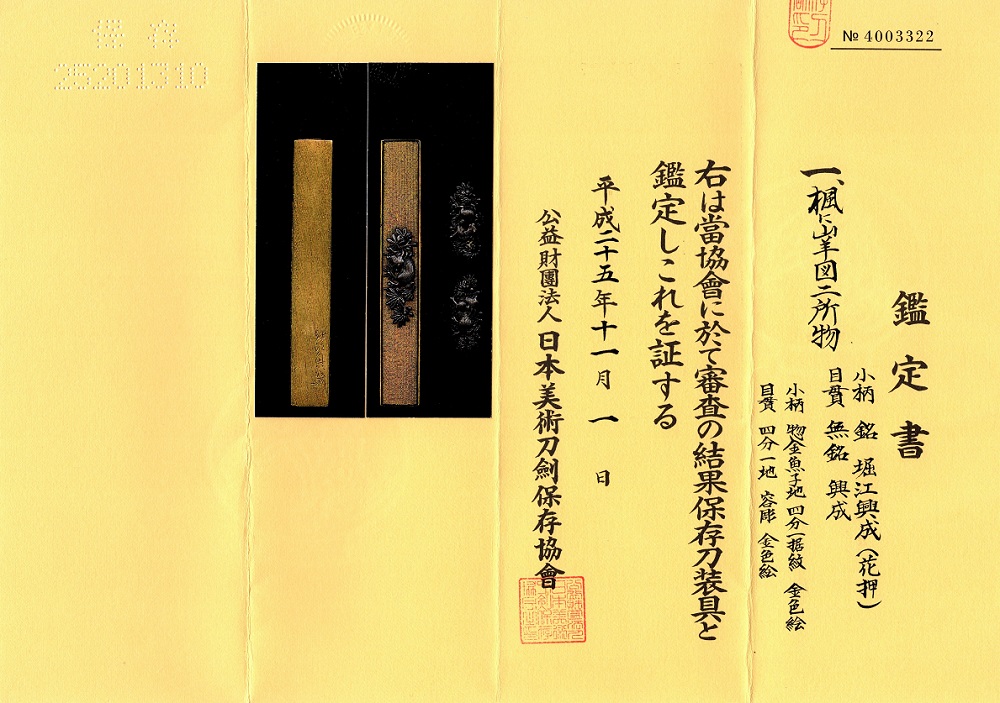 № 4003322
鑑定書
一、楓に山羊図二所物
小柄 銘 堀江興成(花押)
目貫 無銘 興成
小柄 惣金魚子地 四分一据紋 金色絵
目貫 四分一地 容彫 金色絵
右は當協會に於て審査の結果保存刀装具と
鑑定しこれを証する
平成二十五年十一月一日
公益財團法人 日本美術刀劍保存協會
保存
25201310